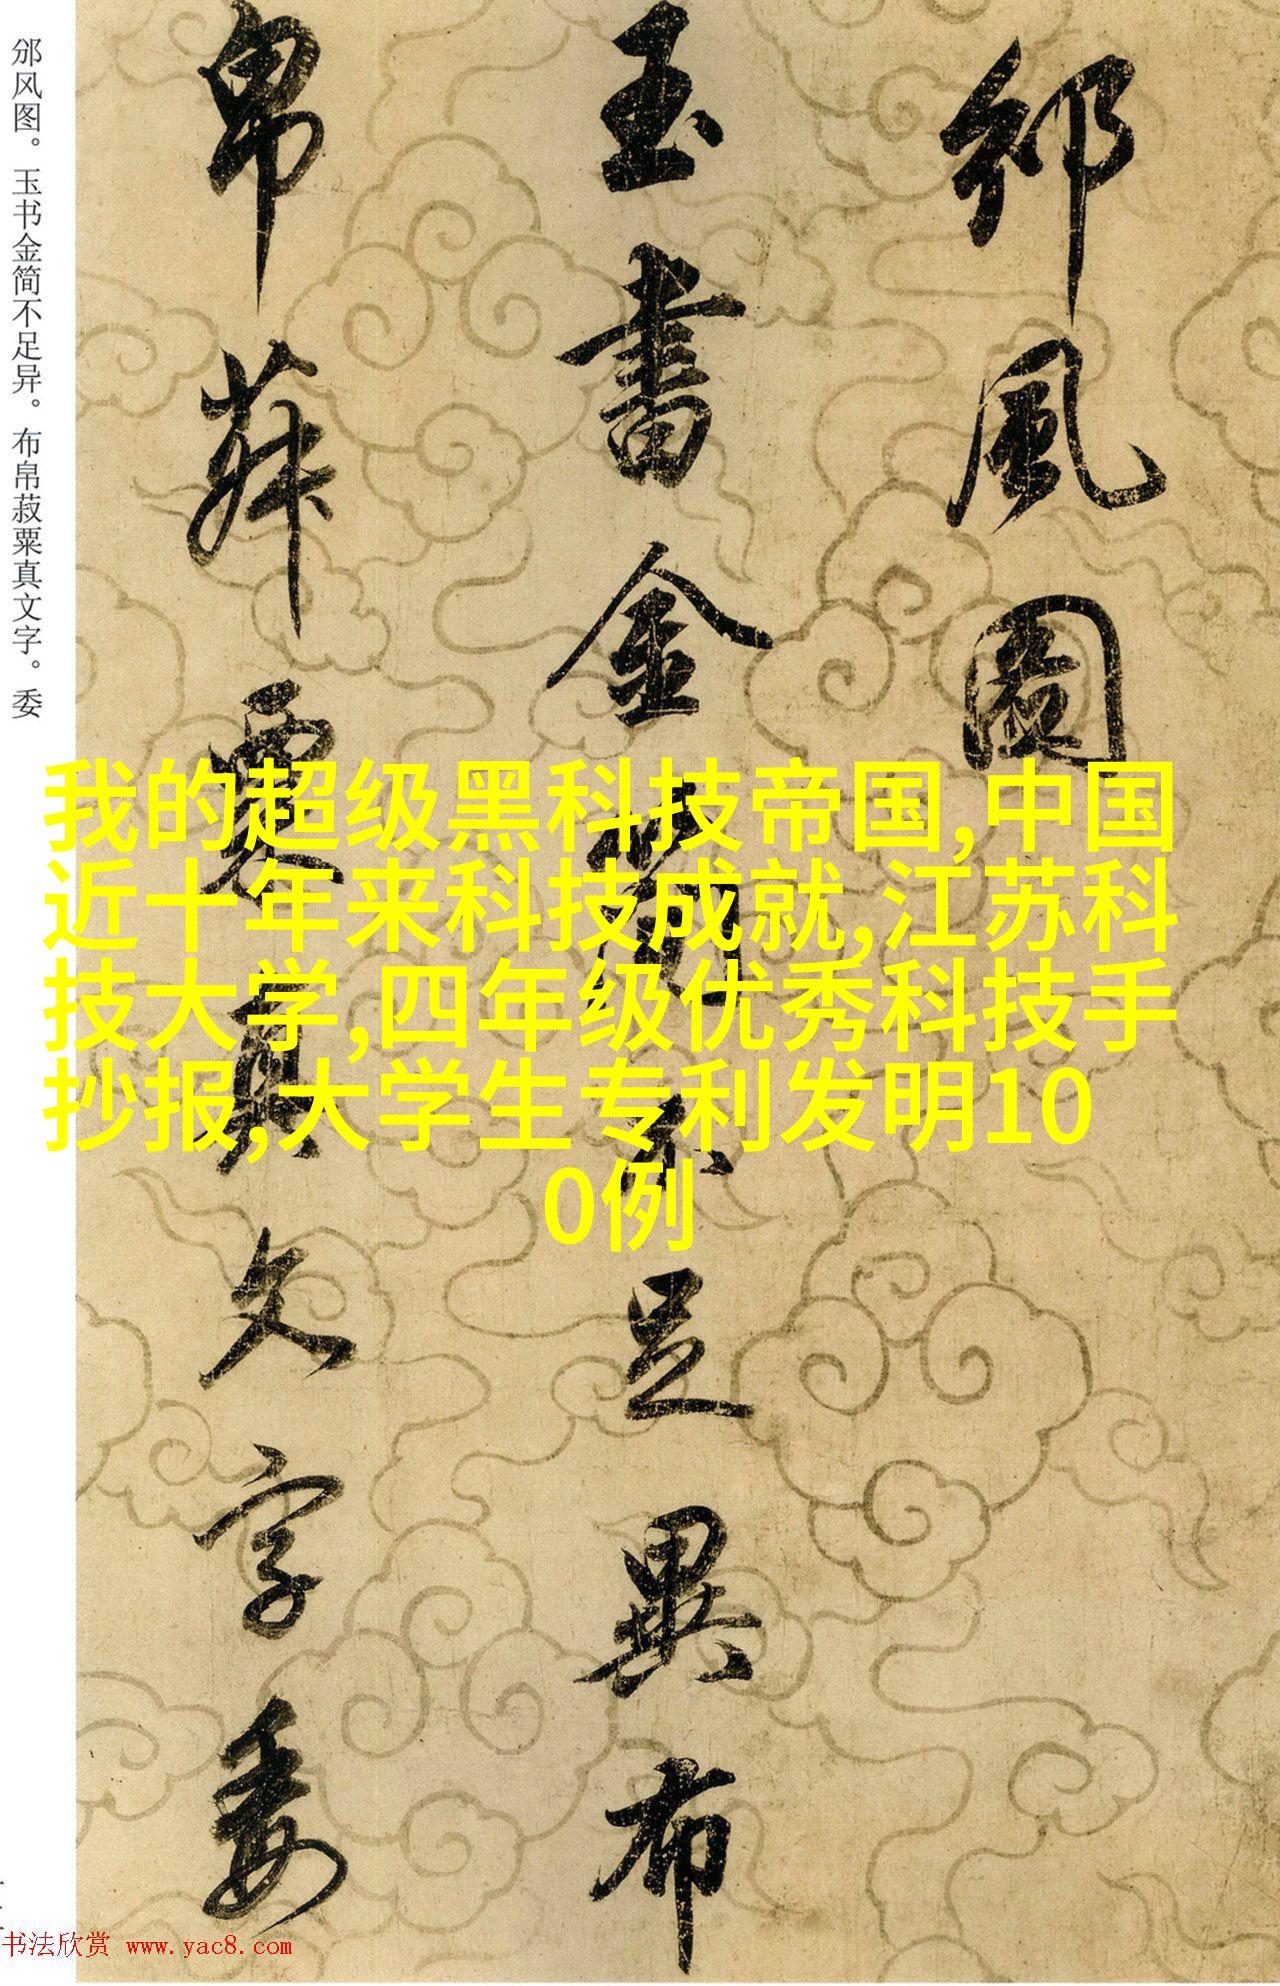 邠风图。玉书金简不足异。布帛菽粟真文字。委
邠風圖
玉書金簡不足異布
帛菽粟真文字委
我的超级黑科技帝国,中国
近十年来科技成就,江苏科
技大学,四年级优秀科技手
抄报,大学生专利发明10
0例
书法欣赏 www.yac8.com